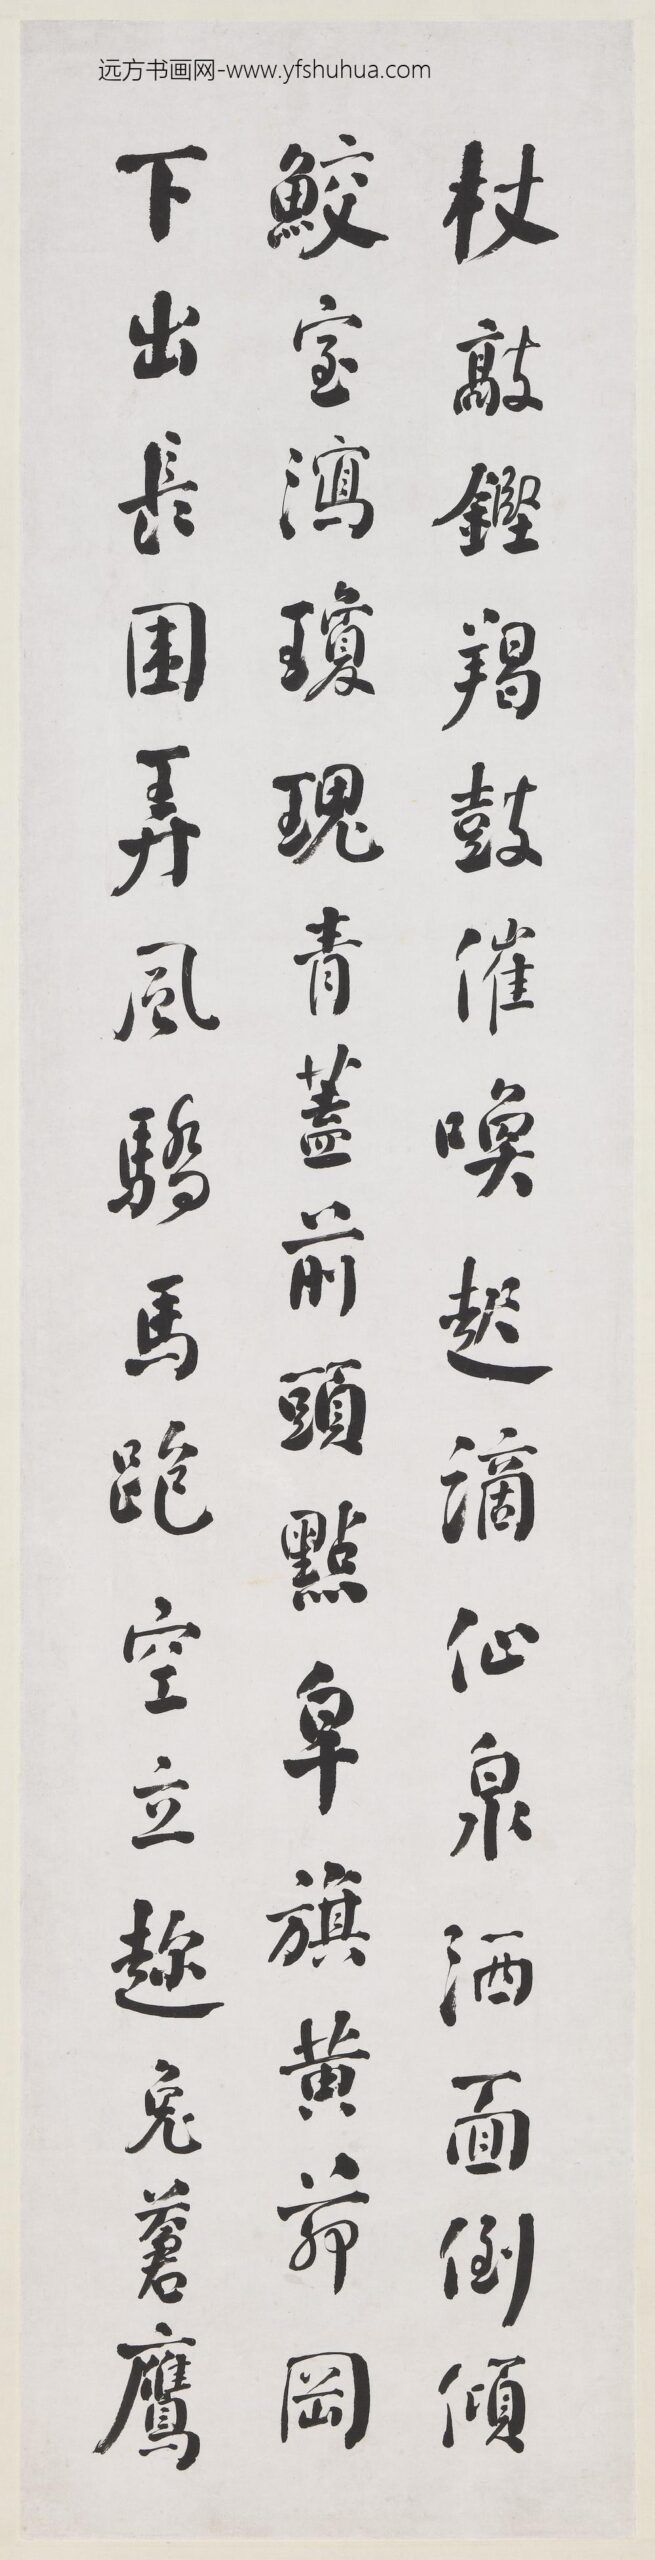 远方书画网-www.yfshuhua.com
杖敲鏗羯鼓催喚起謫仙泉洒面倒傾
鮫室瀉瓊瑰青蓋前頭點皁旗黃茆岡
下出長圍弄風驕馬跑空立趂兔蒼鷹